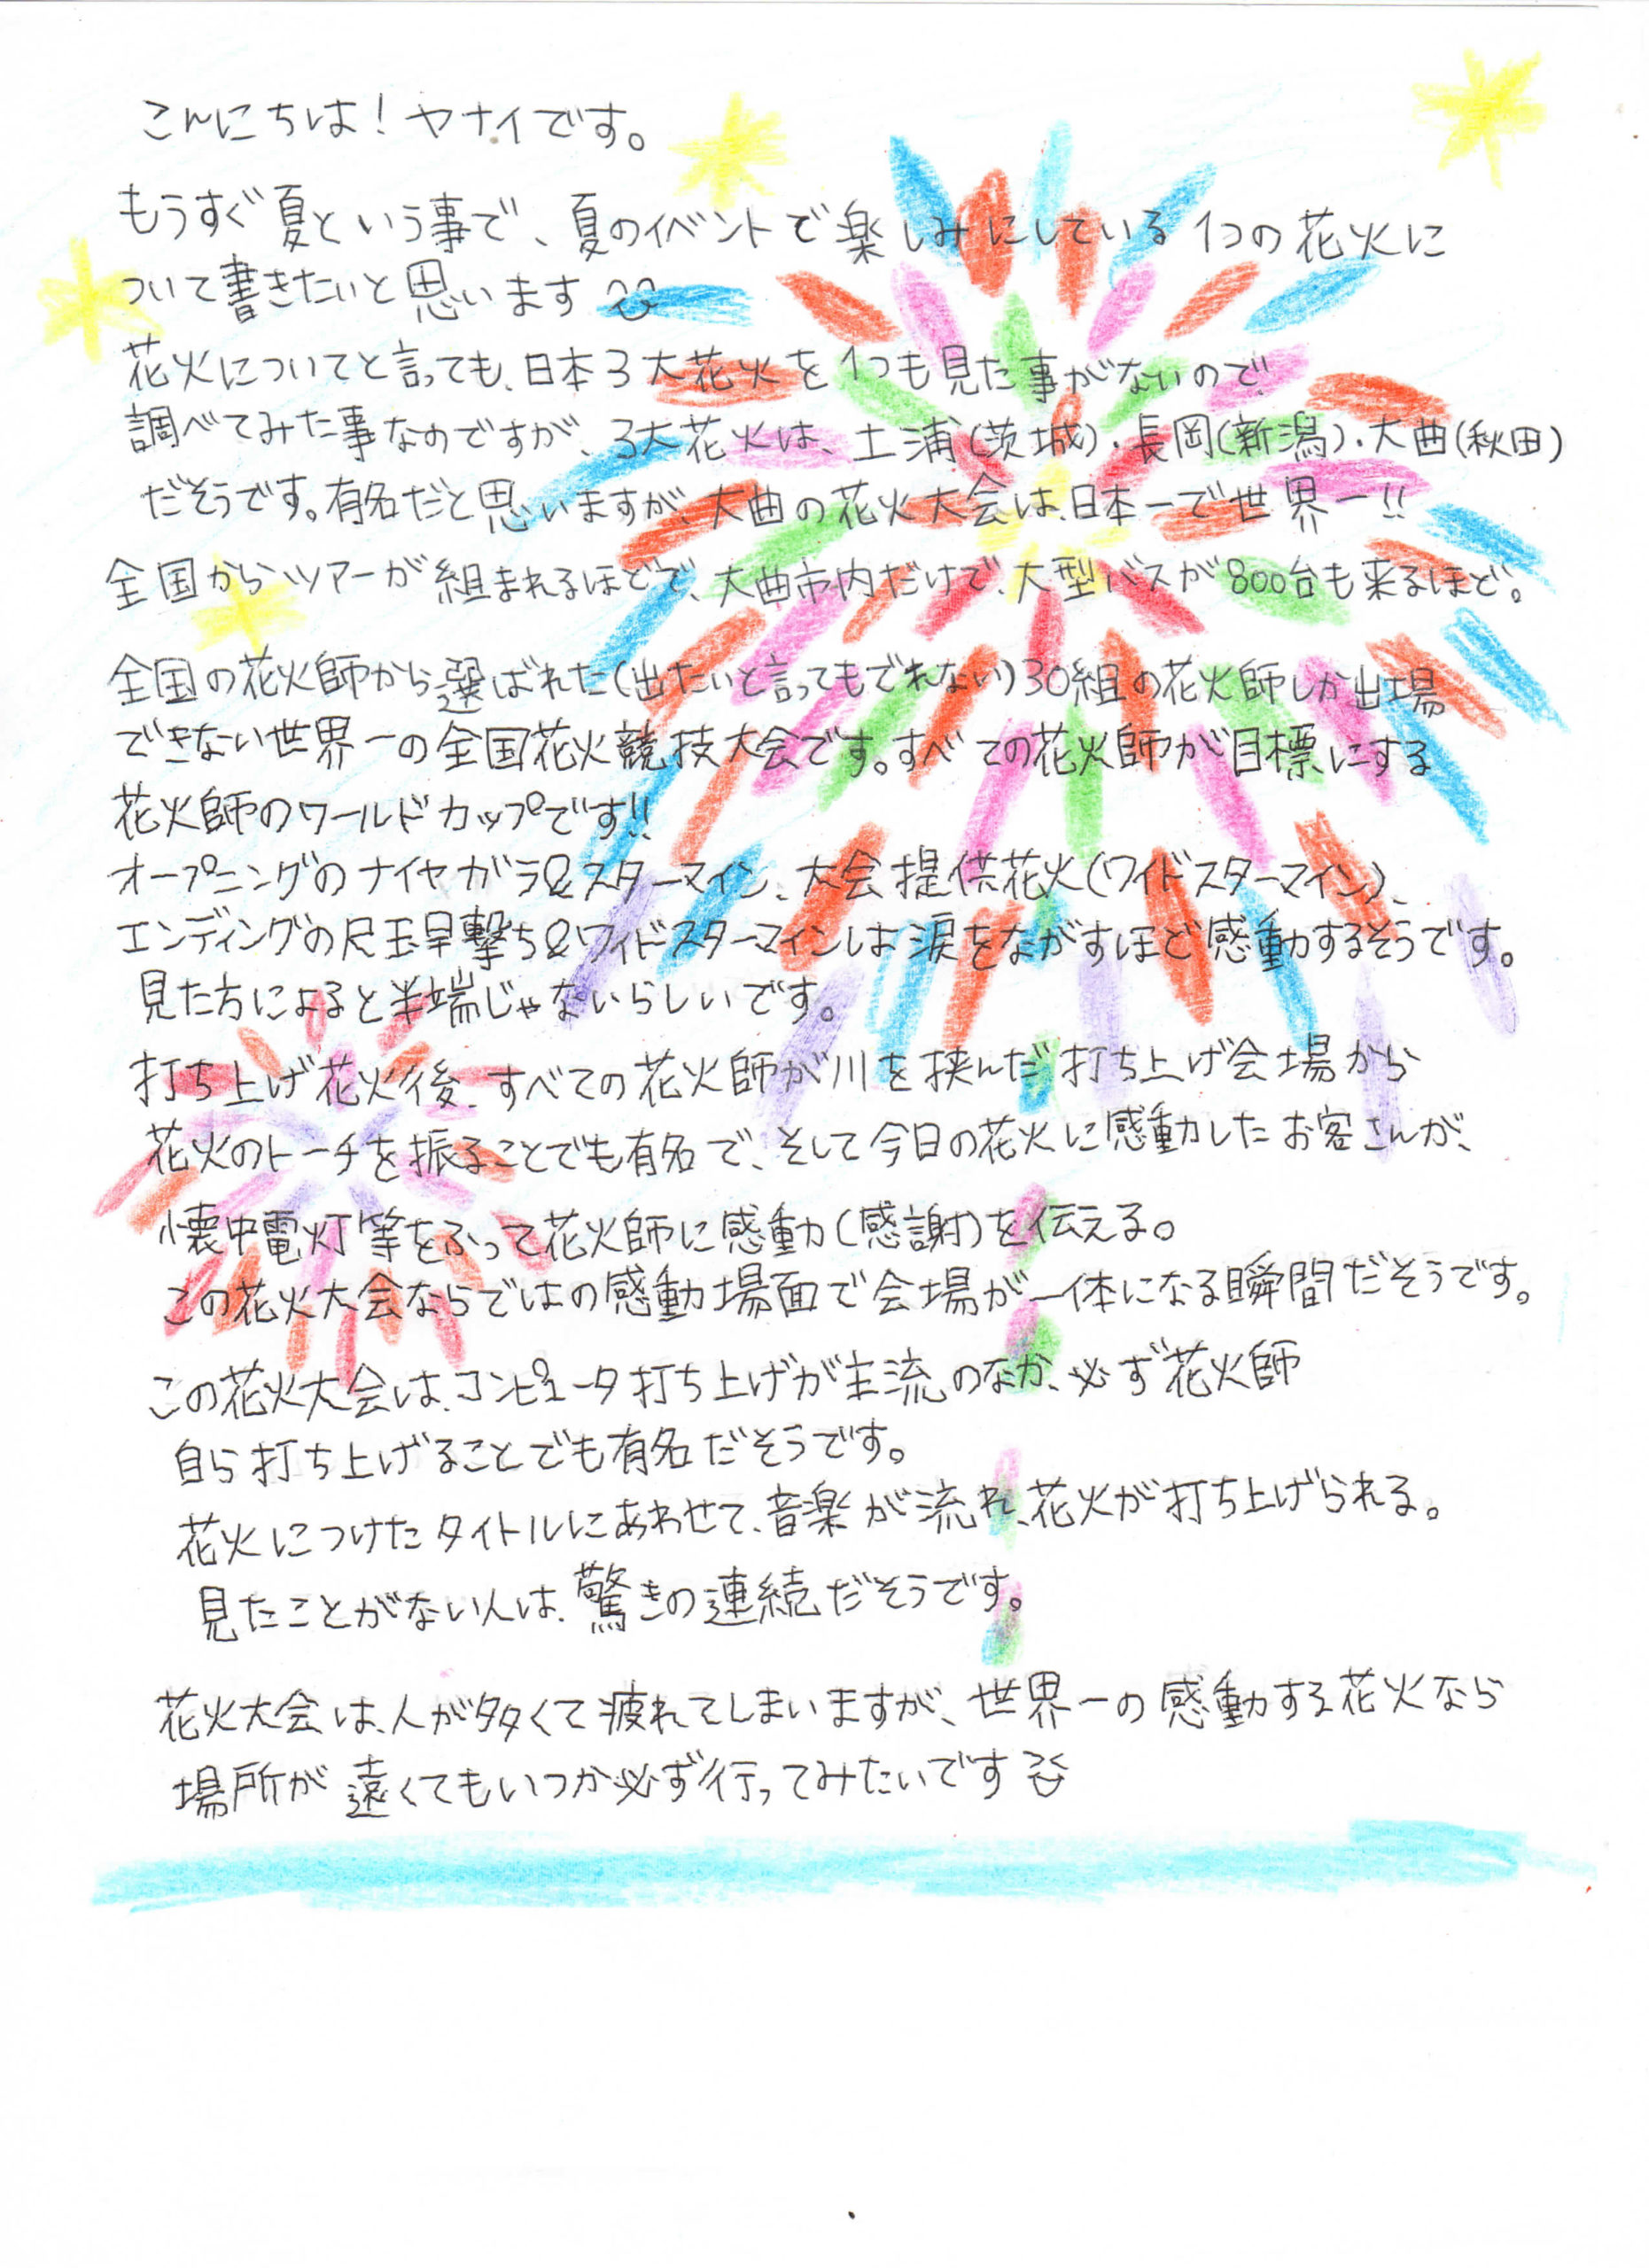 こんにちは！ヤナイです。
もうすぐ夏という事で、夏のイベントで楽しみにしている1つの花火に
ついて書きたいと思います
花火についてと言っても、日本3大花火を1つも見た事がないので
調べてみた事なのですが、3大花火は、土浦(茨城)・長岡(新潟)・大曲(秋田)
だそうです。有名だと思いますが、大曲の花火大会は、日本一で世界一!!
全国からツアーが組まれるほどで、大曲市内だけで、大型バスが800台も来るほど。
全国の花火師から選ばれた(出たいと言ってもでれない)30組の花火師しか出場
できない世界一の全国花火競技大会です。すべての花火師が目標にする
花火師のワールドカップです!!
オープニングのナイヤガラ&スターマイン、大会提供花火(ワイドスターマイン)、
エンディングの尺玉早撃ち&ワイドスターマインは涙をながすほど感動するそうです。
見た方によると半端じゃないらしいです。
打ち上げ花火後、すべての花火師が川を挟んだ打ち上げ会場から
花火のトーチを振ることでも有名で、そして今日の花火に感動したお客さんが、
懐中電灯等をふって花火師に感動(感謝)を伝える。
この花火大会ならではの感動場面で会場が一体になる瞬間だそうです。
この花火大会は、コンピュータ打ち上げが主流のなか、必ず花火師
自ら打ち上げることでも有名だそうです。
花火につけたタイトルにあわせて、音楽が流れ、花火が打ち上げられる。
見たことがない人は、驚きの連続だそうです。
花火大会は、人が多くて疲れてしまいますが、世界一の感動する花火なら
場所が遠くてもいつか必ず行ってみたいです